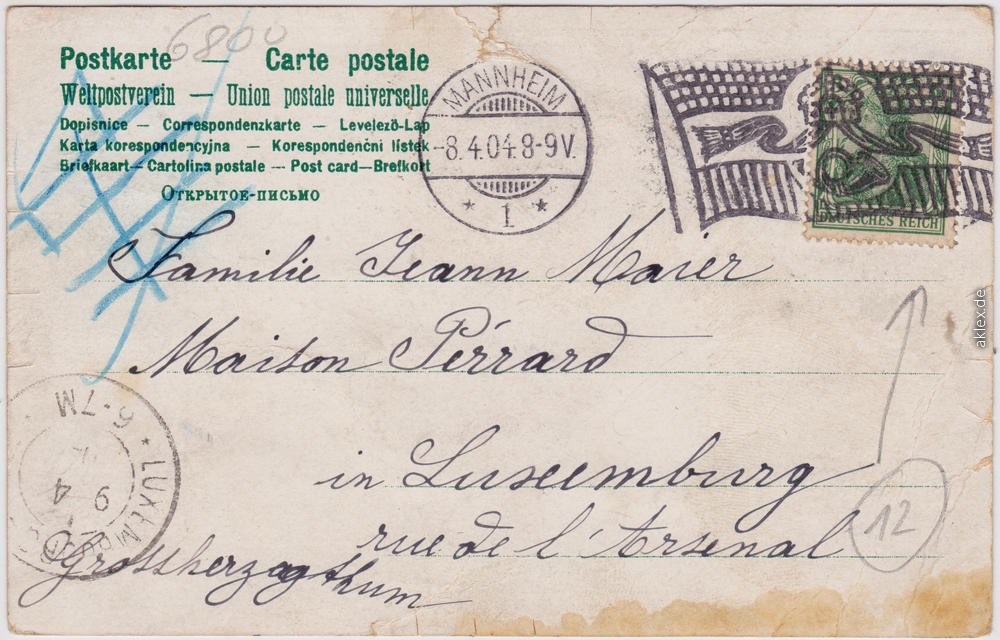 6800
Postkarte — Carte postale
Weltpostverein — Union postale universelle
Dopisnice — Correspondenzkarte — Levelező-Lap
Karta korespondencyjna — Korespondenční lístek
Briefkaart — Cartolina postale — Post card — Brefkort
Открытое-письмо
MANNHEIM
-8.4.04.8-9V.
* 1 *
DEUTSCHES REICH
Familie Jeann Maier
Maison Pérrard
in Luxemburg
rue de l'Arsenal
Grossherzogthum
12
6-7M
* LUXEMBOURG
9
4
aklex.de